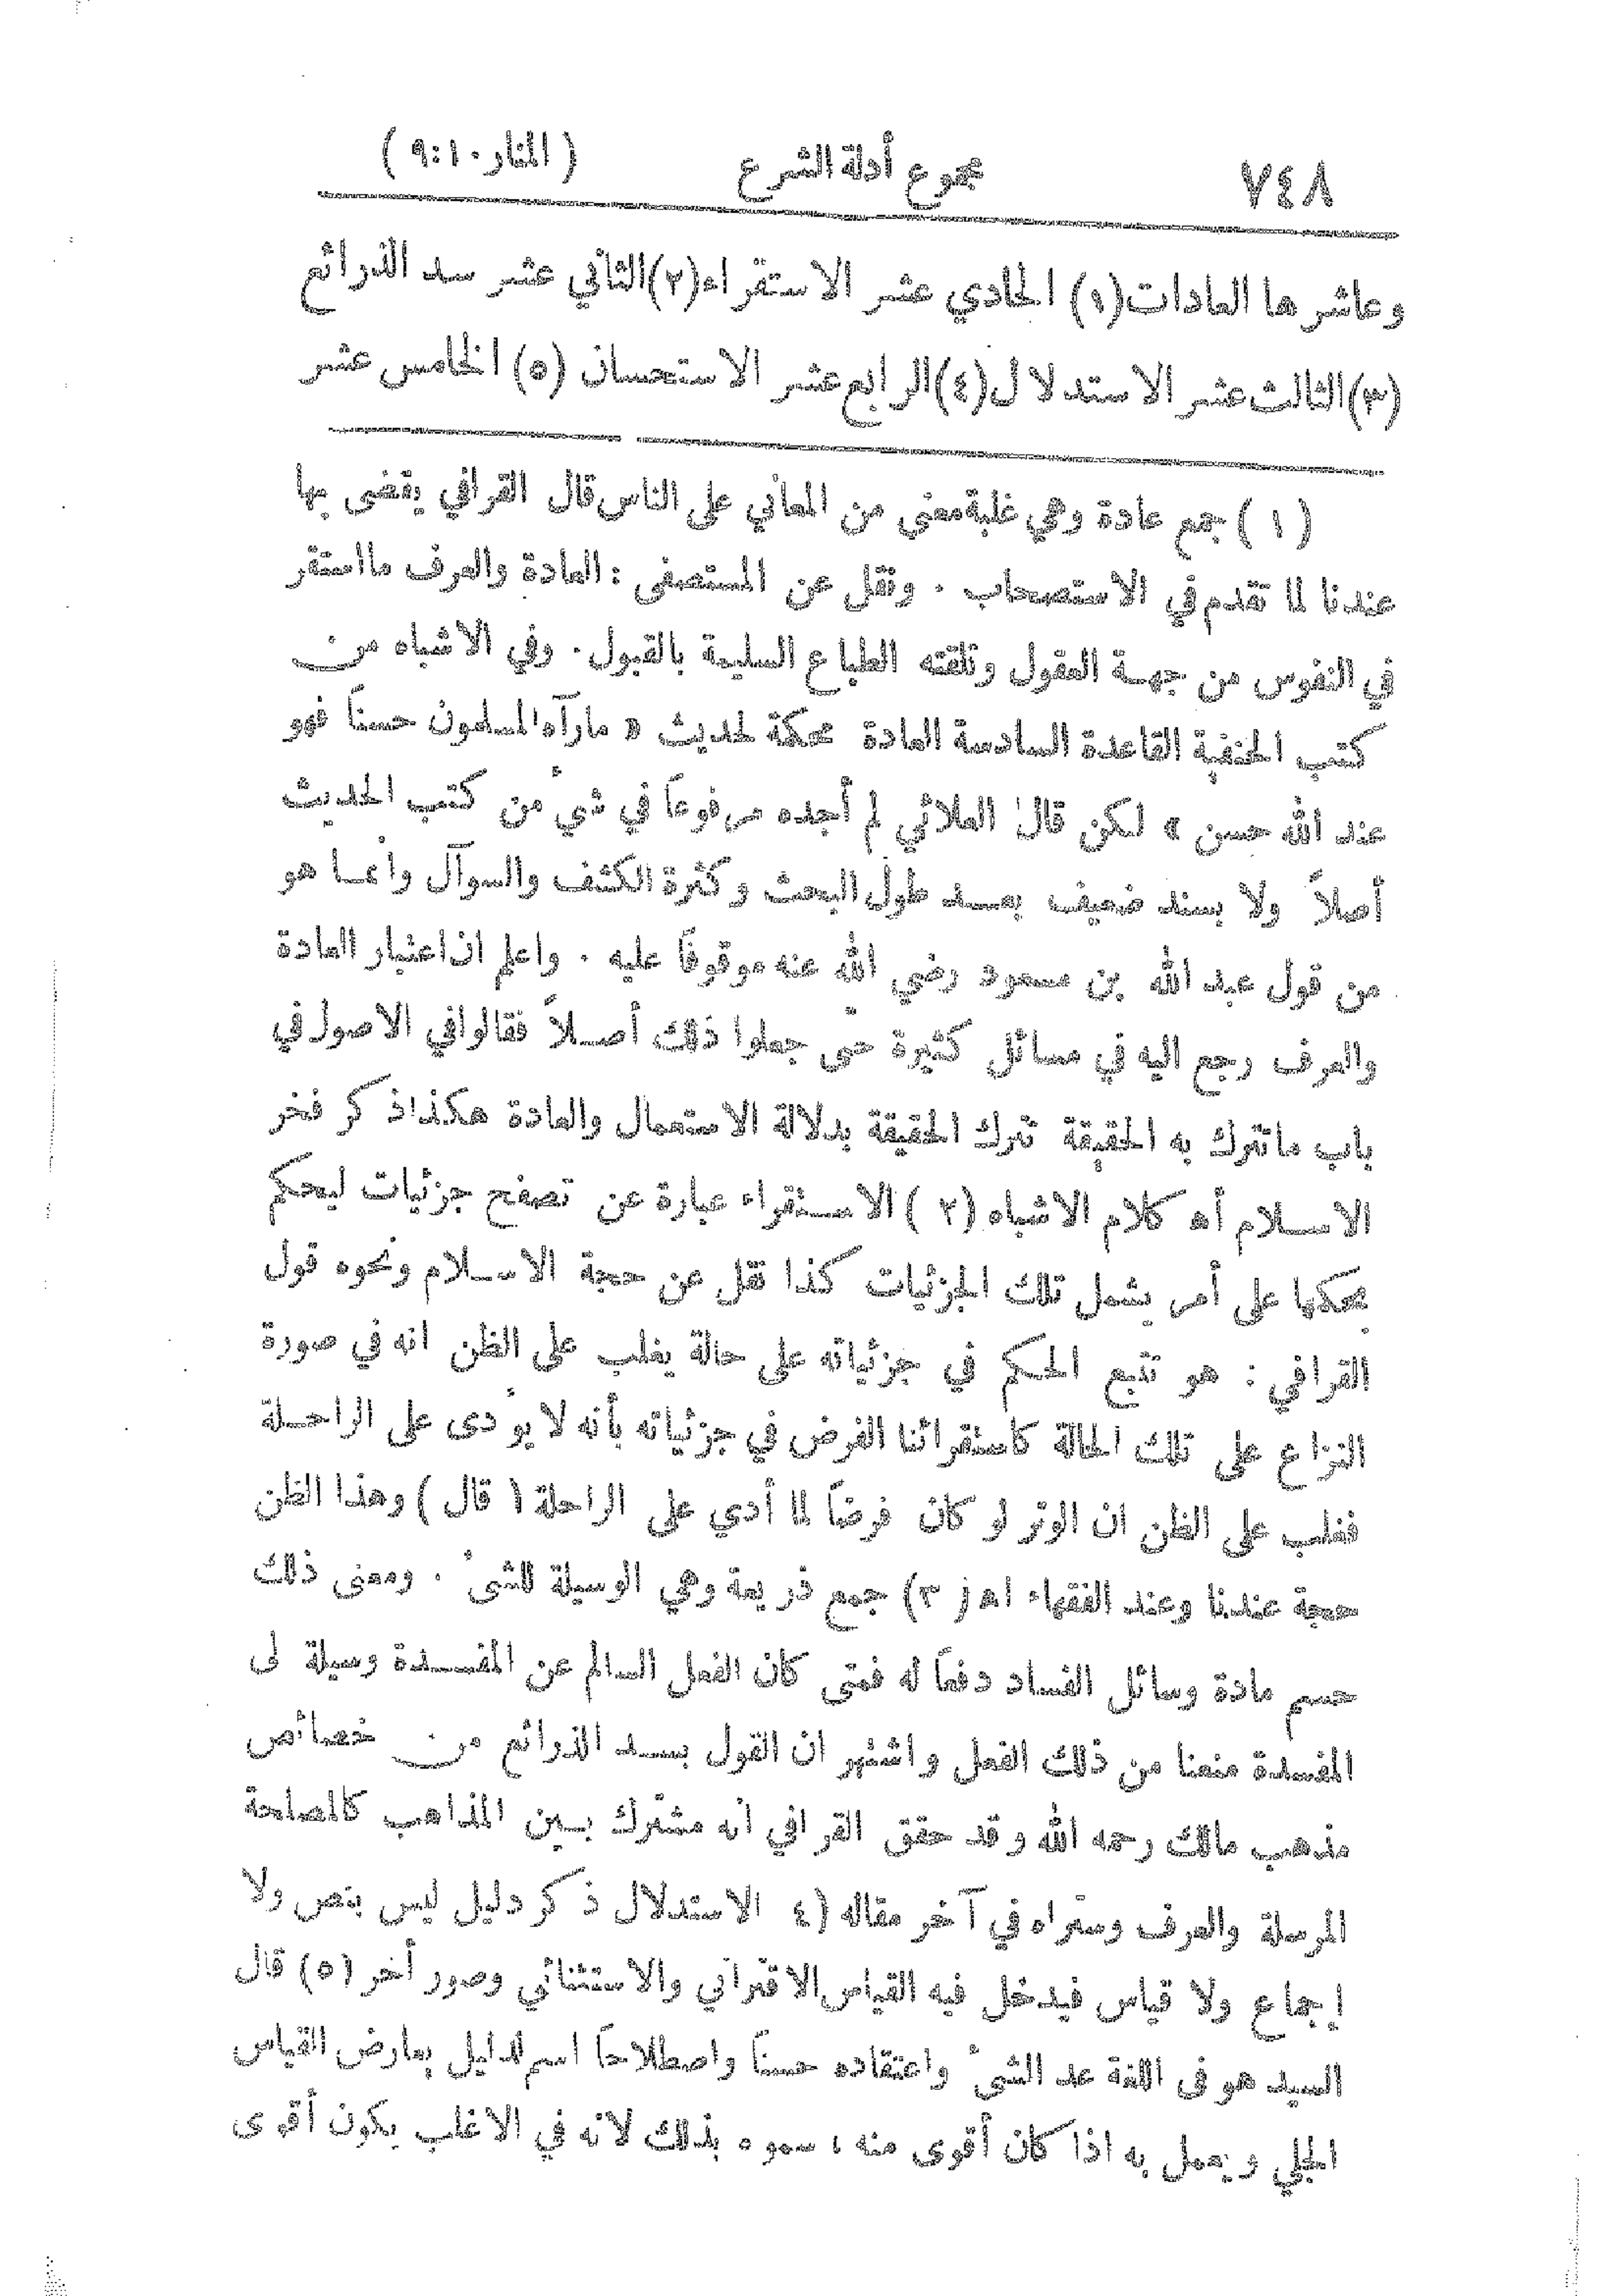 ٧٤٨ مجموع أدلة الشرع (المنار ١٠:٩)
وعاشرها العادات(١) الحادي عشر الاستقراء(٢)الثاني عشر سد الذرائع
(٣)الثالث عشر الاستدلال(٤)الرابع عشر الاستحسان (٥) الخامس عشر
(١) جمع عادة وهي غلبة معنى من المعاني على الناس قال القرافي يقضى بها
عندنا لما تقدم في الاستصحاب . ونقل عن المستصفى : العادة والعرف ما استقر
في النفوس من جهة العقول وتلقته الطباع السليمة بالقبول. وفي الاشباه من
كتب الحنفية القاعدة السادسة العادة محكمة لحديث « مارآه المسلمون حسناً فهو
عند الله حسن » لكن قال العلائي لم أجده مرفوعاً في شيء من كتب الحديث
أصلاً ولا بسند ضعيف بعد طول البحث وكثرة الكشف والسوآل وانما هو
من قول عبد الله بن مسعود رضي الله عنه موقوفاً عليه . واعلم ان اعتبار العادة
والعرف رجع اليه في مسائل كثيرة حتى جعلوا ذلك أصلاً فقالوا في الاصول في
باب ماتترك به الحقيقة تترك الحقيقة بدلالة الاستعمال والعادة هكذا ذكر فخر
الاسلام أه كلام الاشباه (٢) الاستقراء عبارة عن تصفح جزئيات ليحكم
بحكمها على أمر يشمل تلك الجزئيات كذا نقل عن حجة الاسلام ونحوه قول
القرافي : هو تتبع الحكم في جزئياته على حالة يغلب على الظن انه في صورة
النزاع على تلك الحالة كاستقرائنا الفرض في جزئياته بأنه لا يؤدى على الراحلة
فغلب على الظن ان الوتر لو كان فرضاً لما أدي على الراحلة (قال) وهذا الظن
حجة عندنا وعند الفقهاء اه (٣) جمع ذريعة وهي الوسيلة للشيء . ومعنى ذلك
حسم مادة وسائل الفساد دفعاً له فمتى كان الفعل السالم عن المفسدة وسيلة لى
المفسدة منعنا من ذلك الفعل واشتهر ان القول بسد الذرائع من خصائص
مذهب مالك رحمه الله وقد حقق القرافي انه مشترك بين المذاهب كالمصلحة
المرسلة والعرف وستراه في آخر مقاله (٤ الاستدلال ذكر دليل ليس بنص ولا
إجماع ولا قياس فيدخل فيه القياس الاقتراني والاستثنائي وصور أخر (٥) قال
السيد هو فى اللغة عد الشيء واعتقاده حسناً واصطلاحاً اسم لدليل يعارض القياس
الجلي ويعمل به اذا كان أقوى منه ، سموه بذلك لانه في الاغلب يكون أقوى